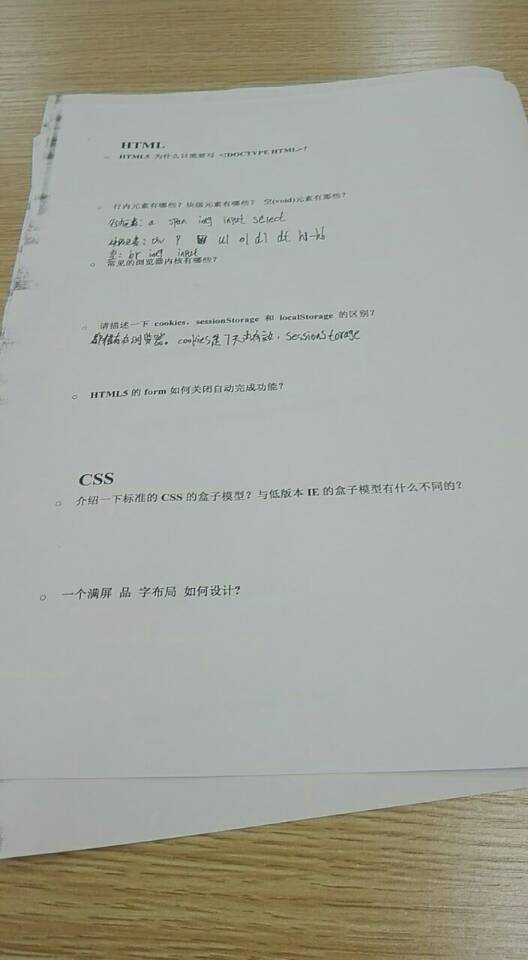 HTML
○ HTML5 为什么只需要写 <!DOCTYPE HTML>?
○ 行内元素有哪些?块级元素有哪些? 空(void)元素有那些?
行内元素: a span img input select
块级元素: div P ul ol dl dt h1-h6
空: br img input
○ 常见的浏览器内核有哪些?
○ 请描述一下 cookies, sessionStorage 和 localStorage 的区别?
都储存在浏览器。cookies是7天内有效, sessionStorage
○ HTML5 的 form 如何关闭自动完成功能?
CSS
○ 介绍一下标准的 CSS 的盒子模型?与低版本 IE 的盒子模型有什么不同的?
○ 一个满屏 品 字布局 如何设计?